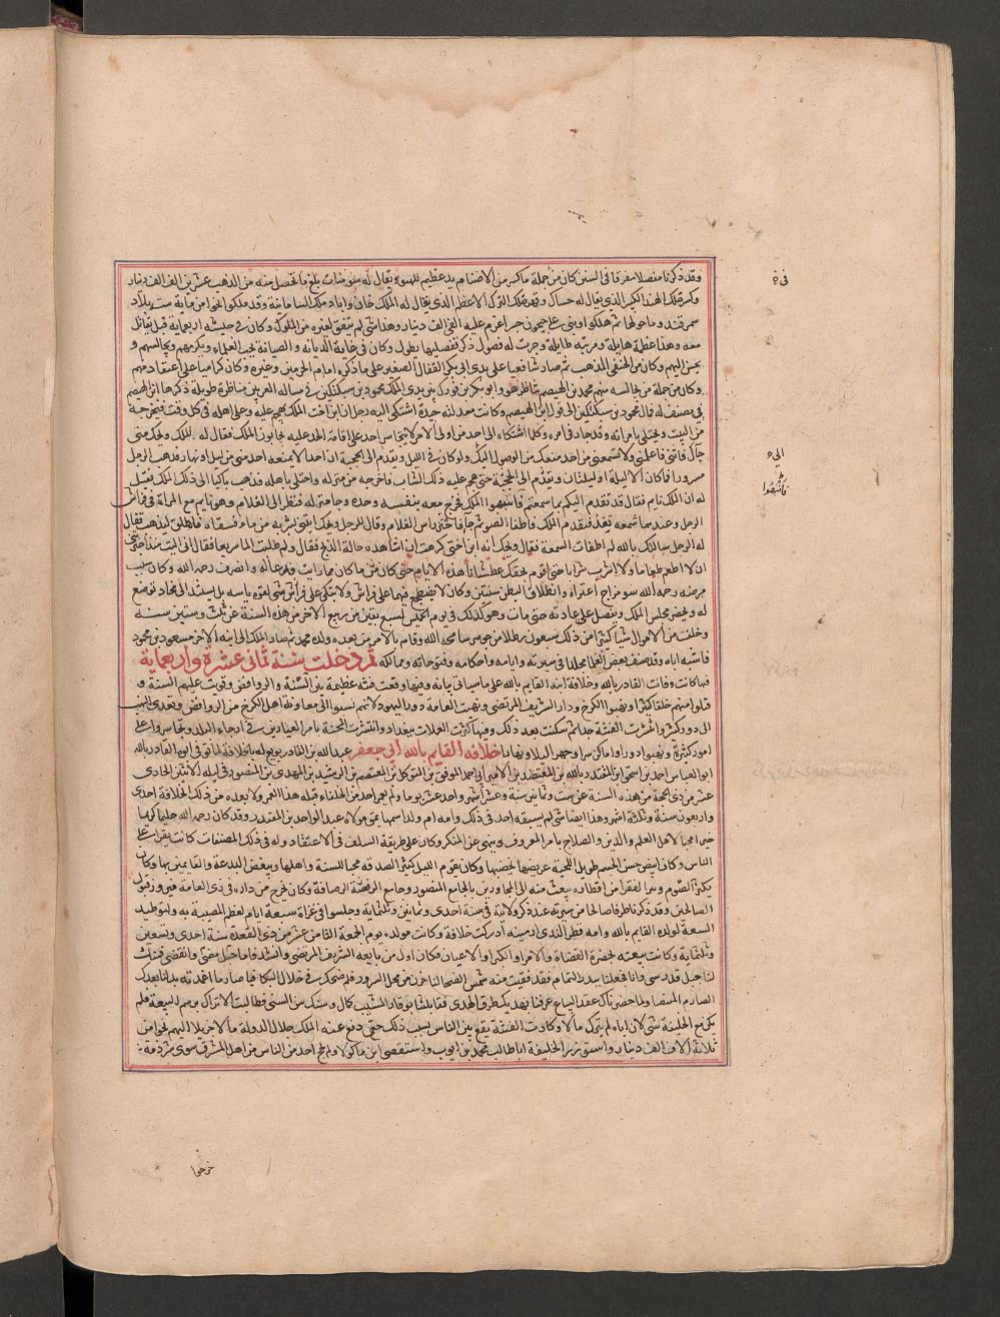 وقد ذكرنا مفصلا متفرقا في السنين كان من جملة ما كسر من الاصنام بد عظيم للهنود يقال له سومنات بلغ ما تحصل منه من الذهب عشرين الف الف دينار
وكسر ملك الهند الكبير الذي يقال له وقهر ملك الترك الاعظم الذي يقال له الملك خان واباد ملك السامانية وقد ملكوا نحوا من ماية سنة بلاد
سمرقند وما حولها ثم هلكوا وبنى على جيحون جسرا غرم عليه الفي الف دينار وهذا شي لم يتفق لغيره من الملوك وكان في جيشه اربعماية فيل تقاتل
معه وهذا عظمة هايلة ومرتبة طايلة وجرت له فصول ذكر تفصيلها يطول وكان في غاية الديانة والصيانة يحب العلماء ويكرمهم ويجالسهم و
يحسن اليهم وكان من الحنفي المذهب ثم صار شافعيا على يدي ابي بكر القفال الصغير على ما ذكره امام الحرمين وغيره وكان كراميا على اعتقادهم
وكان من جملة من يجالسه منهم محمد بن الهيصم تناظر هو وابو بكر بن فورك بين يدي الملك محمود بن سبكتكين في مسالة العرش مناظرة طويلة ذكرها ابن الهيصم
في مصنف له فمال محمود بن سبكتكين الى قول ابن الهيصم وكانت معدلته جيدة اشتكى اليه رجل ان ابن اخت الملك يهجم عليه وعلى اهله في كل وقت فيخرجه
من البيت ويختلي بامراته وقد حار في امره وكلما اشتكاه الى احد من اولي الامر لا يتجاسر احد على اقامة الحد عليه يهابون الملك فقال له الملك ويحك متى
جاك فاتني فاعلمني ولا تسمعن من احد منعك من الوصول اليك ولو كان في الليل وتقدم الى الحجبة ان احدا لا يمنعه احد متى من ليل او نهار فذهب الرجل
مسرورا فما كان الا ليلة او ليلتان حتى هجم عليه ذلك الشاب فاخرجه من منزله واختلى باهله فذهب باكيا الى ذلك الملك فقيل
له ان الملك نايم فقال قد تقدم اليكم بما سمعتم فانبهوا الملك فخرج معه بنفسه وحده وجا منزله فنظر الى الغلام وهو نايم مع المراة في فراش
الرجل وعندهما شمعة تقد فتقدم الملك فاطفا الضو ثم جا فاحتز راس الغلام وقال للرجل ويحك ايتني بشربة من ما فسقاه فانطلق ليذهب فقال
له الرجل سالتك بالله لم اطفات الشمعة فقال ويحك انه ابن اختي كرهت ان اشاهده حالة الذبح فقال ولم طلبت الما سريعا فقال اني اليت منذ اخبرتني
ان لا اطعم طعاما ولا اشرب شرابا حتى اقوم بحقك عطشانا هذه الايام حتى كان من ما كان مما رايت فدعا له وانصرف رحمه الله وكان سبب
مرضه رحمه الله سو مزاج اعتراه وانطلاق البطن سنتين وكان لا يضطجع فيهما على فراش ولا يتكي على فراش شي لقوة باسه بل يستند الى مخاد توضع
له ويحضر مجلس الملك ويفصل على عادته حتى مات وهو كذلك في يوم الخميس لسبع بقين من ربيع الاخر من هذه السنة عن ثلث وستين سنة
وخلف من الاموال شيا كثيرا من ذلك سبعون رطلا من جوهر سامحه الله وقام بالامر من بعده ولده محمد ثم صار الملك الى ابنه الاخر مسعود بن محمود
فاشبه اباه وقد صنف بعض العلما مجلدا في سيرته وايامه واحكامه وفتوحاته وممالكه ثم دخلت سنة ثماني عشرة واربعماية
فيها كانت وفات القادر بالله وخلافة ابنه القايم بالله على ما سياتي بيانه وفيها وقعت فتنة عظيمة بين السنة والروافض وقويت عليهم السنة و
قتلوا منهم خلقا كثيرا ونهبوا الكرخ ودار الشريف المرتضى ونهبت العامة دور اليهود لانهم نسبوا الى معاونة اهل الكرخ من الروافض وتعدى النهب
الى دور كثيرة وانتشرت الفتنة جدا ثم سكنت بعد ذلك وفيها كثرت العملات ببغداد وانتشرت المحنة بامر العيارين في ارجاء البلد وتجاسروا على
امور كثيرة ونهبوا دورا واماكن سرا وجهرا ليلا ونهارا خلافة القايم بالله ابي جعفر عبد الله بن القادر بويع له بالخلافة لما توفي ابوه القادر بالله
ابو العباس احمد بن اسحق ابن المقتدر بالله بن المعتضد بن الامير ابي احمد الموفق بن المتوكل بن المعتصم بن الرشيد بن المهدي بن المنصور في ليلة الاثنين الحادي
عشر من ذي الحجة من هذه السنة عن ست وثمانين سنة وعشرة اشهر واحد عشر يوما ولم يعمر احد من الخلفاء قبله هذا العمر ولا بعده من ذلك الخلافة احدى
واربعون سنة وثلثة اشهر وهذا ايضا شي لم يسبقه احد في ذلك وامه ام ولد اسمها يمنى مولاة عبد الواحد بن المقتدر وقد كان رحمه الله حليما كريما
خيرا محبا لاهل العلم والدين والصلاح يامر بالمعروف وينهى عن المنكر وكان على طريقة السلف في الاعتقاد وله في ذلك المصنفات كانت تقرات على
الناس وكان ابيض حسن الجسم طويل اللحية عريضها يخضبها وكان يقوم الليل كثير الصدقة محبا للسنة واهلها ويبغض البدعة والقايمين بها وكان
يكثر الصوم ويبر الفقرا من اقطاره يبعث منه الى المجاورين بالجامع المنصور وجامع الرصافة وكان يخرج من داره في ذي العامة فيزور قبور
الصالحين وقد ذكرنا طرفا صالحا من سيرته عند ذكر ولايته في سنة احدى وثمانين وثلثماية وجلسوا في عزاه سبعة ايام لعظم المصيبة به ولتوطيد
البيعة لولده القايم بالله وامه قطر الندى ارمينه ادركت خلافة وكانت مولده يوم الجمعة الثامن عشر من ذي القعدة سنة احدى وتسعين
وثلثماية وكانت بيعته بحضرة القضاة والامراء والكبراء والاعيان فكان اول من بايعه الشريف المرتضى وانشد فاما جبل مضى وانقضى فمنك
لنا جبل قد رسى واما فجعنا ببدر التمام فقد بقيت منه شمس الضحى لنا حزن من محل السرور فكم ضحك من خلال البكا فيا صارما اغمدته يد لنا بعدك
الصارم المنتضا ولما حضرناك عقد البياع عرفنا بهديك طرق الهدى فقابلتنا بوقار المشيب كمال وسنك سن الفتى وطالبت الاتراك برسم البيعة فلم
يكن مع الخليفة شي لان اباه لم يترك مالا وكادت الفتنة تقع بين الناس بسبب ذلك حتى دفع عنه الملك جلال الدولة مالا جزيلا اليهم نحوا من
ثلاثة الاف الف دينار واستوزر الخليفة ابا طالب محمد بن ايوب واستقضى ابن ماكولا ولم يحج احد من الناس من اهل المشرق سوى شرذمة
في
الي
فانتبهوا
خرجوا